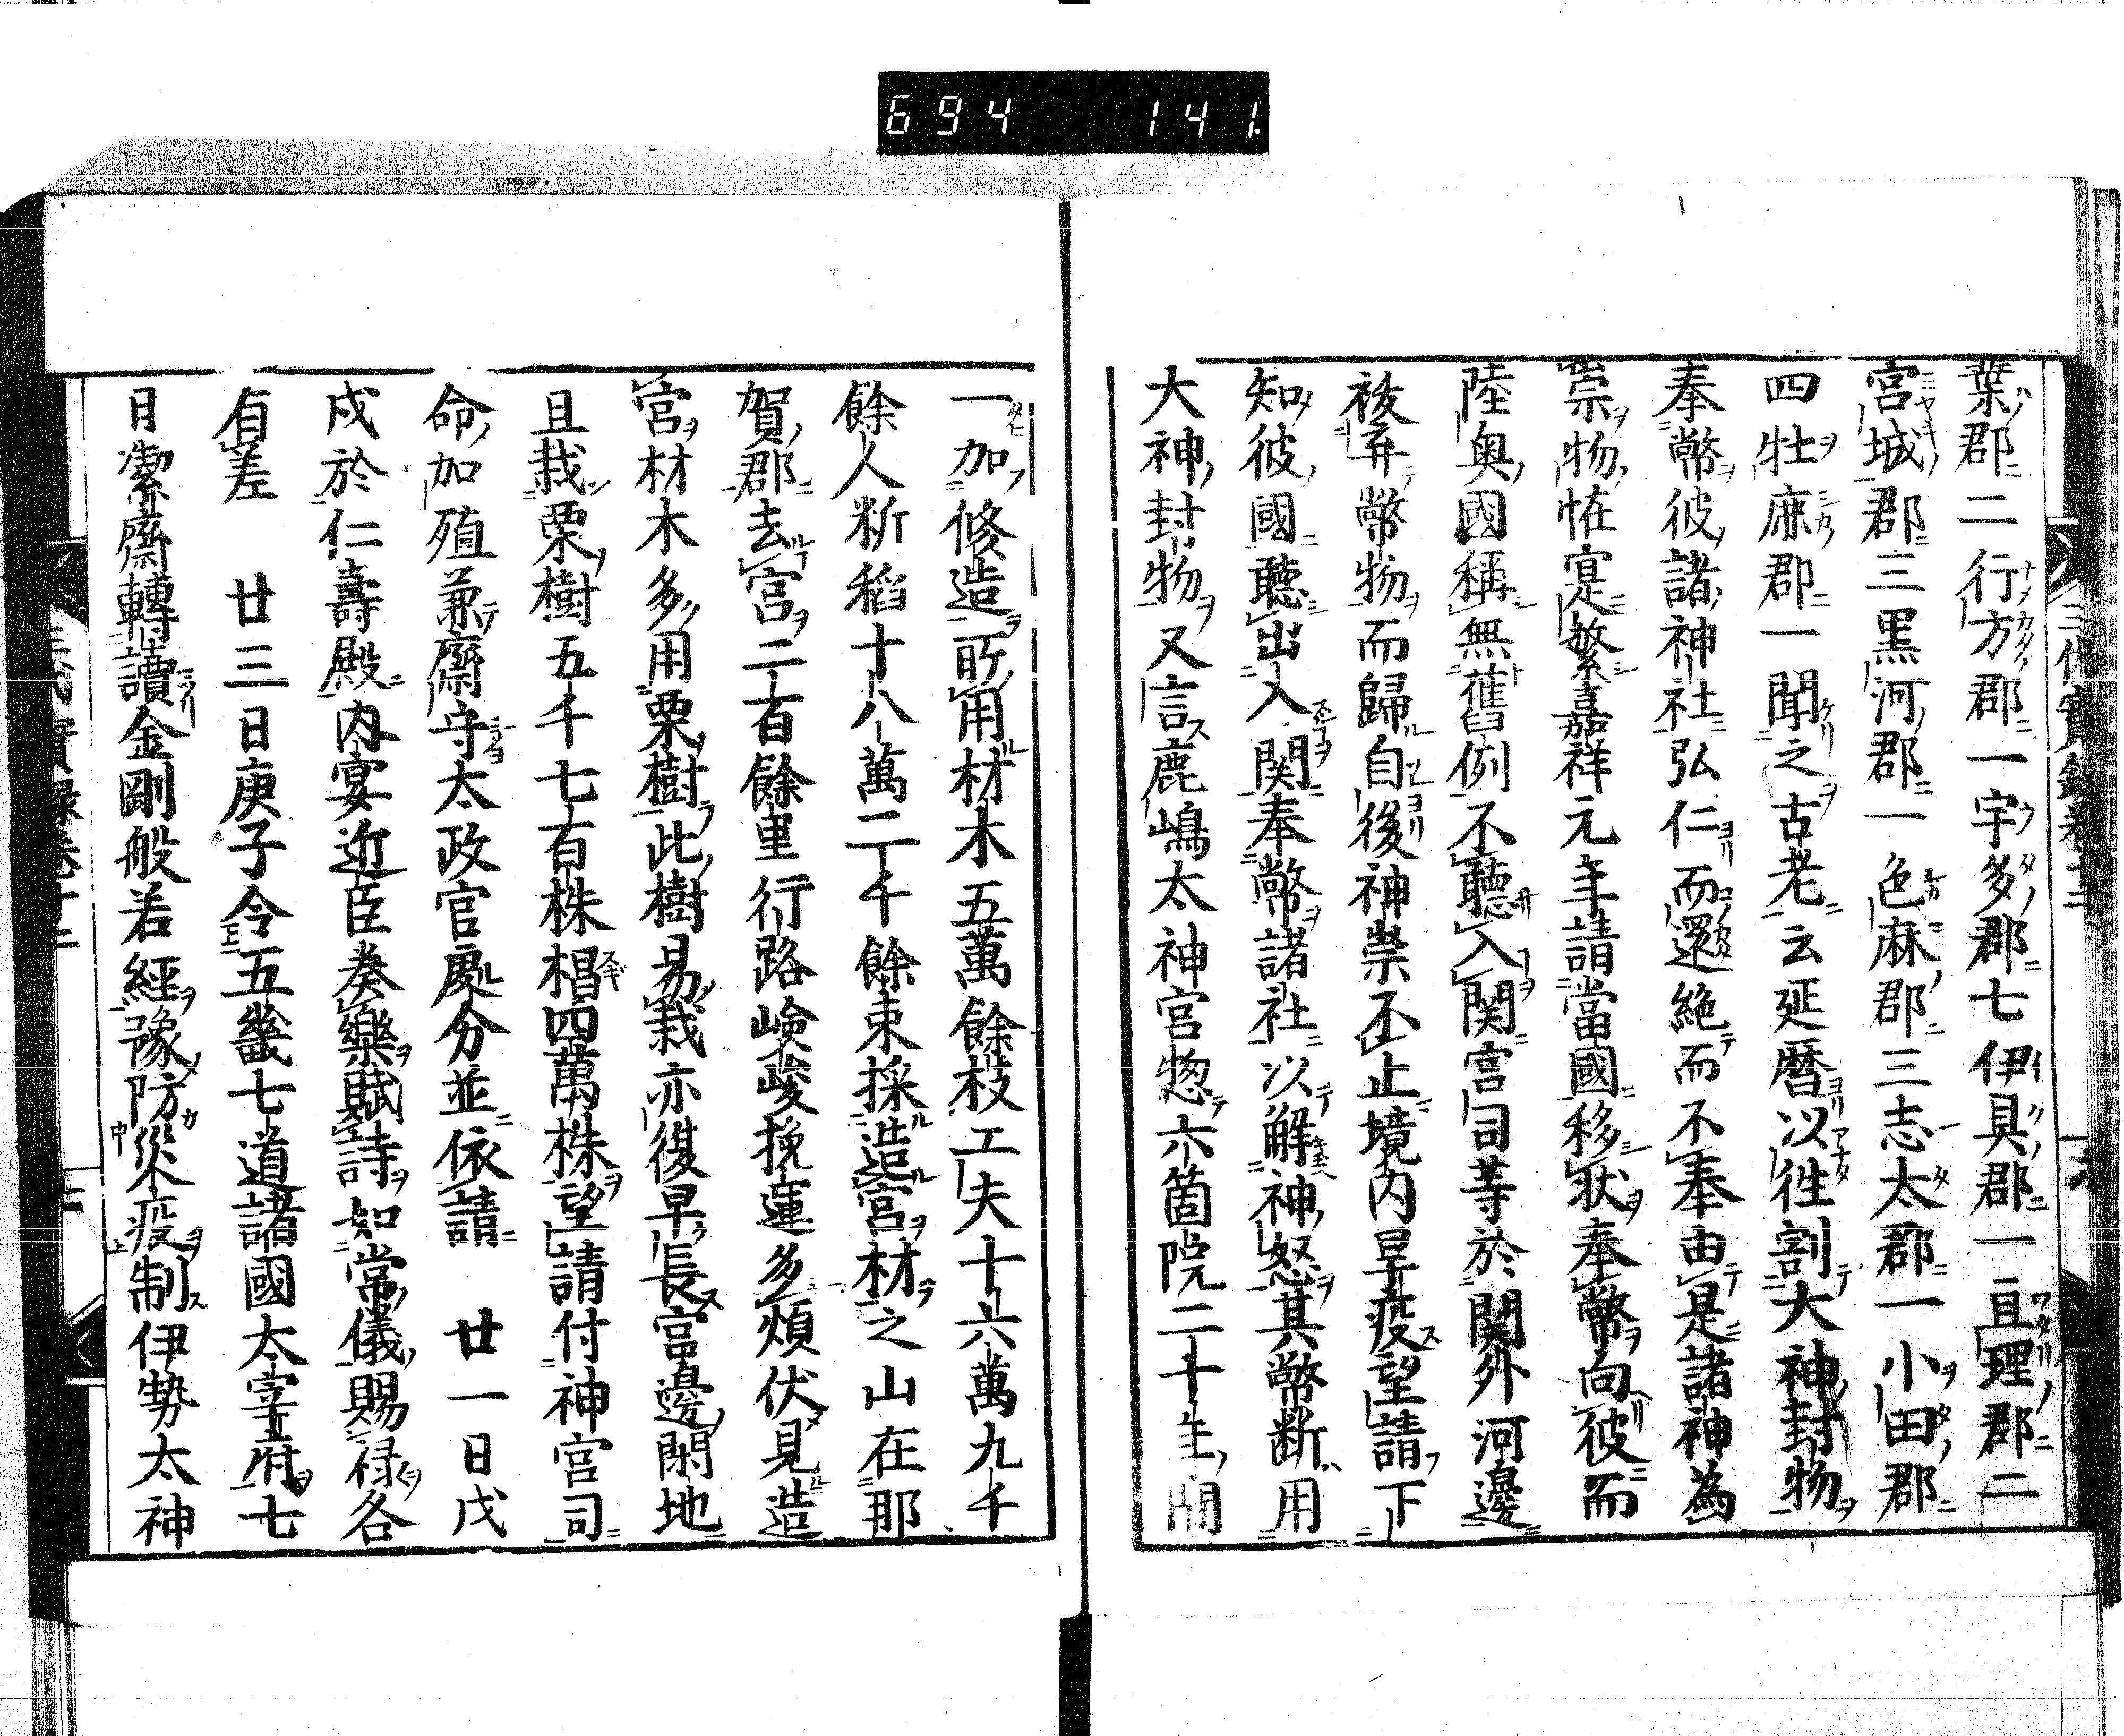 694 141
葉郡二行方郡一宇多郡七伊具郡一亘理郡二
宮城郡三黒河郡一色麻郡三志太郡一小田郡
四牡鹿郡一聞之古老云延暦以徃割大神封物
奉幣彼諸神社弘仁而還絶而不奉由是諸神為
崇物恠寔繁嘉祥元年請當國移状奉幣向彼而
陸奥國稱無舊例不聴入関宮司等於関外河邊
祓弃幣物而歸自後神崇不止境内旱疫望請下
知彼國聴出入関奉幣諸社以解神怒其幣断用
大神封物又言鹿嶋太神宮惣六箇院二十年間
一加修造所用材木五萬餘枝工夫十六萬九千
餘人断稻十八萬二千餘束採造宮材之山在那
賀郡去宮二百餘里行路嶮峻挽運多煩伏見造
宮材木多用栗樹此樹易栽亦復早長宮邊閑地
且栽栗樹五千七百株椙四萬株望請付神宮司
命加殖兼齋守太政官處分並依請　廿一日戊
戌於仁壽殿内宴近臣奏樂賦詩如常儀賜禄各
有差　廿三日庚子令五畿七道諸國太宰府七
日潔齋轉讀金剛般若經豫防災疫制伊勢太神